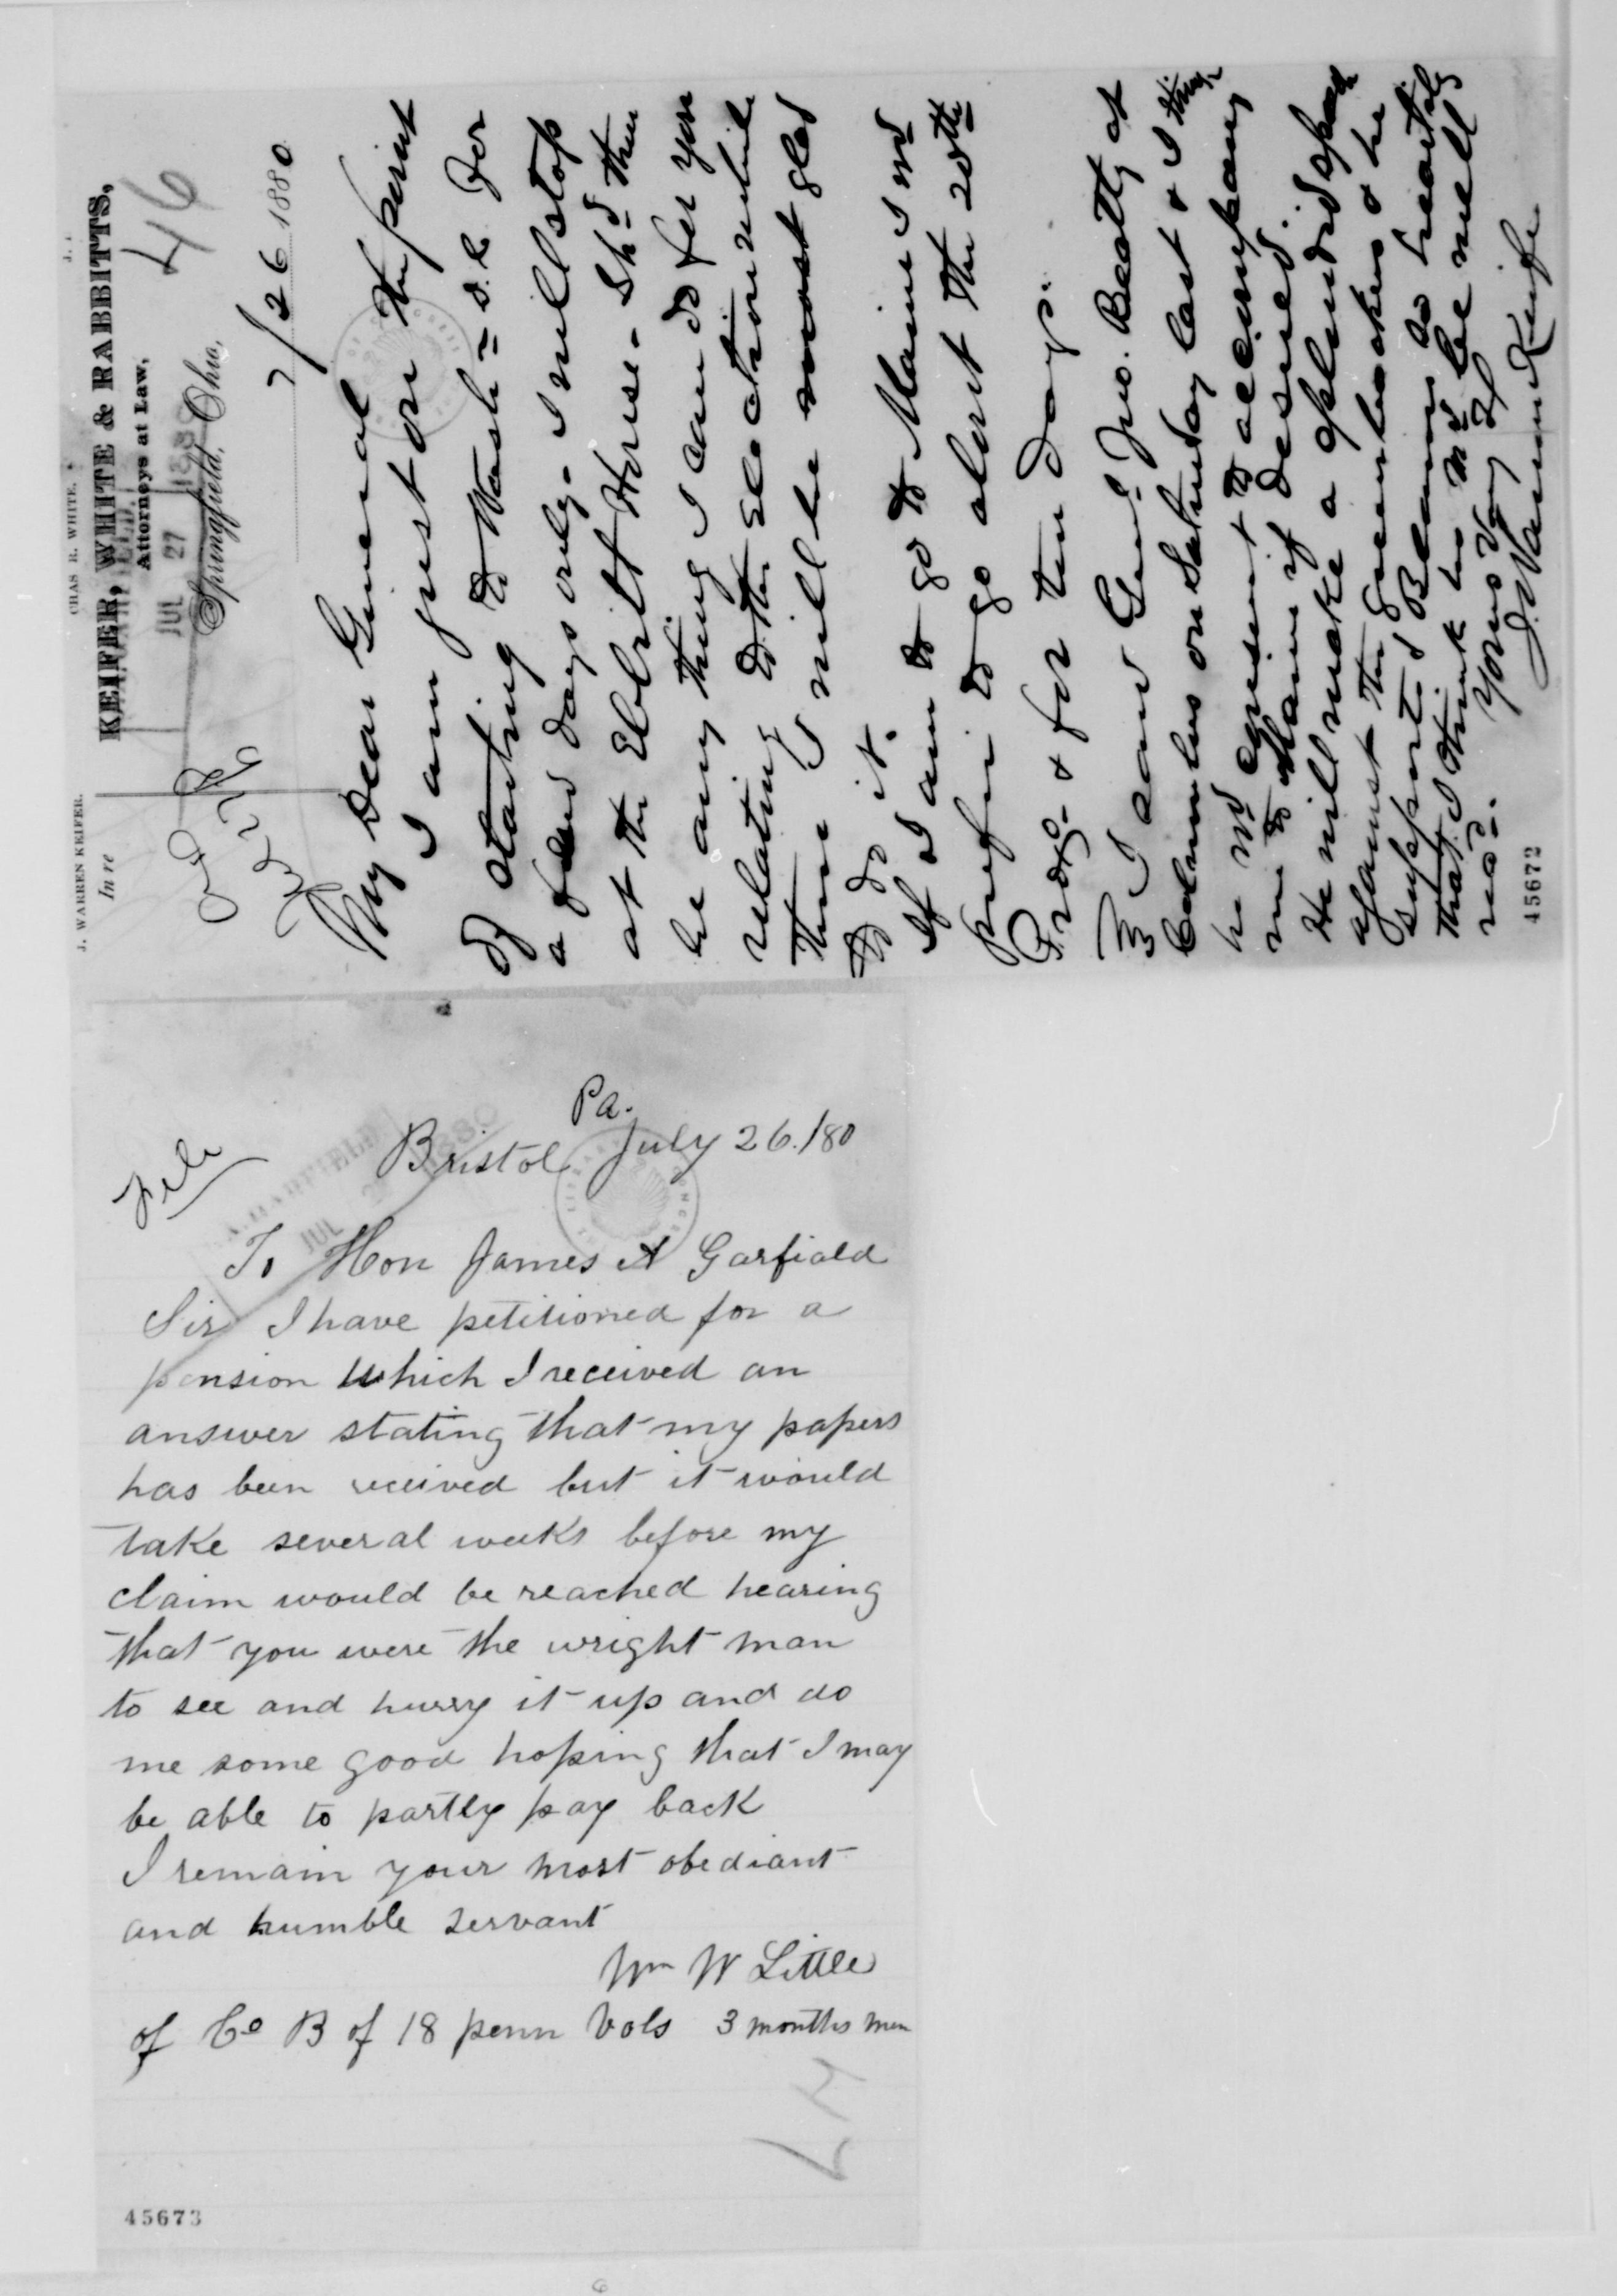 J. WARREN KEIFER. CHAS R. WHITE.
KEIFER, WHITE & RABBITTS,
Attorneys at Law,
In re
Springfield, Ohio,
7/26 1880
46
JUL 27 1880
My Dear General
I am just on the point
of starting to Washn D.C. for
a few days only. I will stop
at the Ebbitt House. Shd there
be any thing I can do for you
relating to the Election while
there I will be most glad
to do it.
If I am to go to Maine I wd
prefer to go about the 20th
Prox. & for ten days.
I saw Genl Jno. Beatty at
Columbus on Saturday last & I think
he wd consent to accompany
me to Maine if desired.
He will make a splendid speech
against the greenbackers & he
supports Blaine so heartily
that I think he wd be well
recd. Yours Very
J. Warren Keifer
45672
File
Pa.
Bristol July 26./80
JUL
To Hon James A Garfiald
Sir I have petitioned for a
pension which I received an
answer stating that my papers
has been received but it would
take several weeks before my
claim would be reached hearing
that you were the wright man
to see and hurry it up and do
me some good hoping that I may
be able to partly pay back
I remain your most obediant
and humble servant
Wm W Little
of Co B of 18 penn Vols 3 months men
47
45673